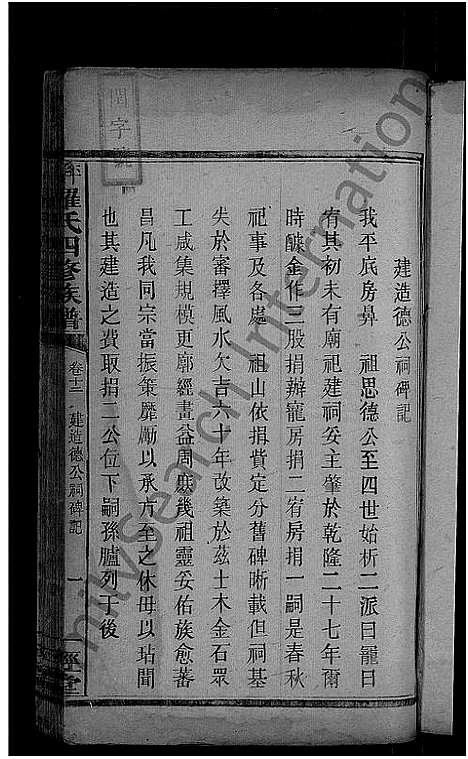 建造德公祠碑記
我平底房鼻　祖思德公至四世始析二派曰寵曰
宥其初未有廟祀建祠妥主肇於乾隆二十七年爾
時醵金作三股捐辦寵房捐二宥房捐一嗣是春秋
祀事及各處　祖山依捐貲定分舊碑晰載但祠基
失於審擇風水欠吉六十年改築於茲土木金石眾
工咸集規模更廓經畫益周庶幾祖靈妥佑族愈蕃
昌凡我同宗當振策磨勵以承方至之休毋以玷聞
也其建造之費取捐二公位下嗣孫臚列于後
羅氏四修族譜
卷十二
建造德公祠碑記
一
一經堂
字號
milySearch International